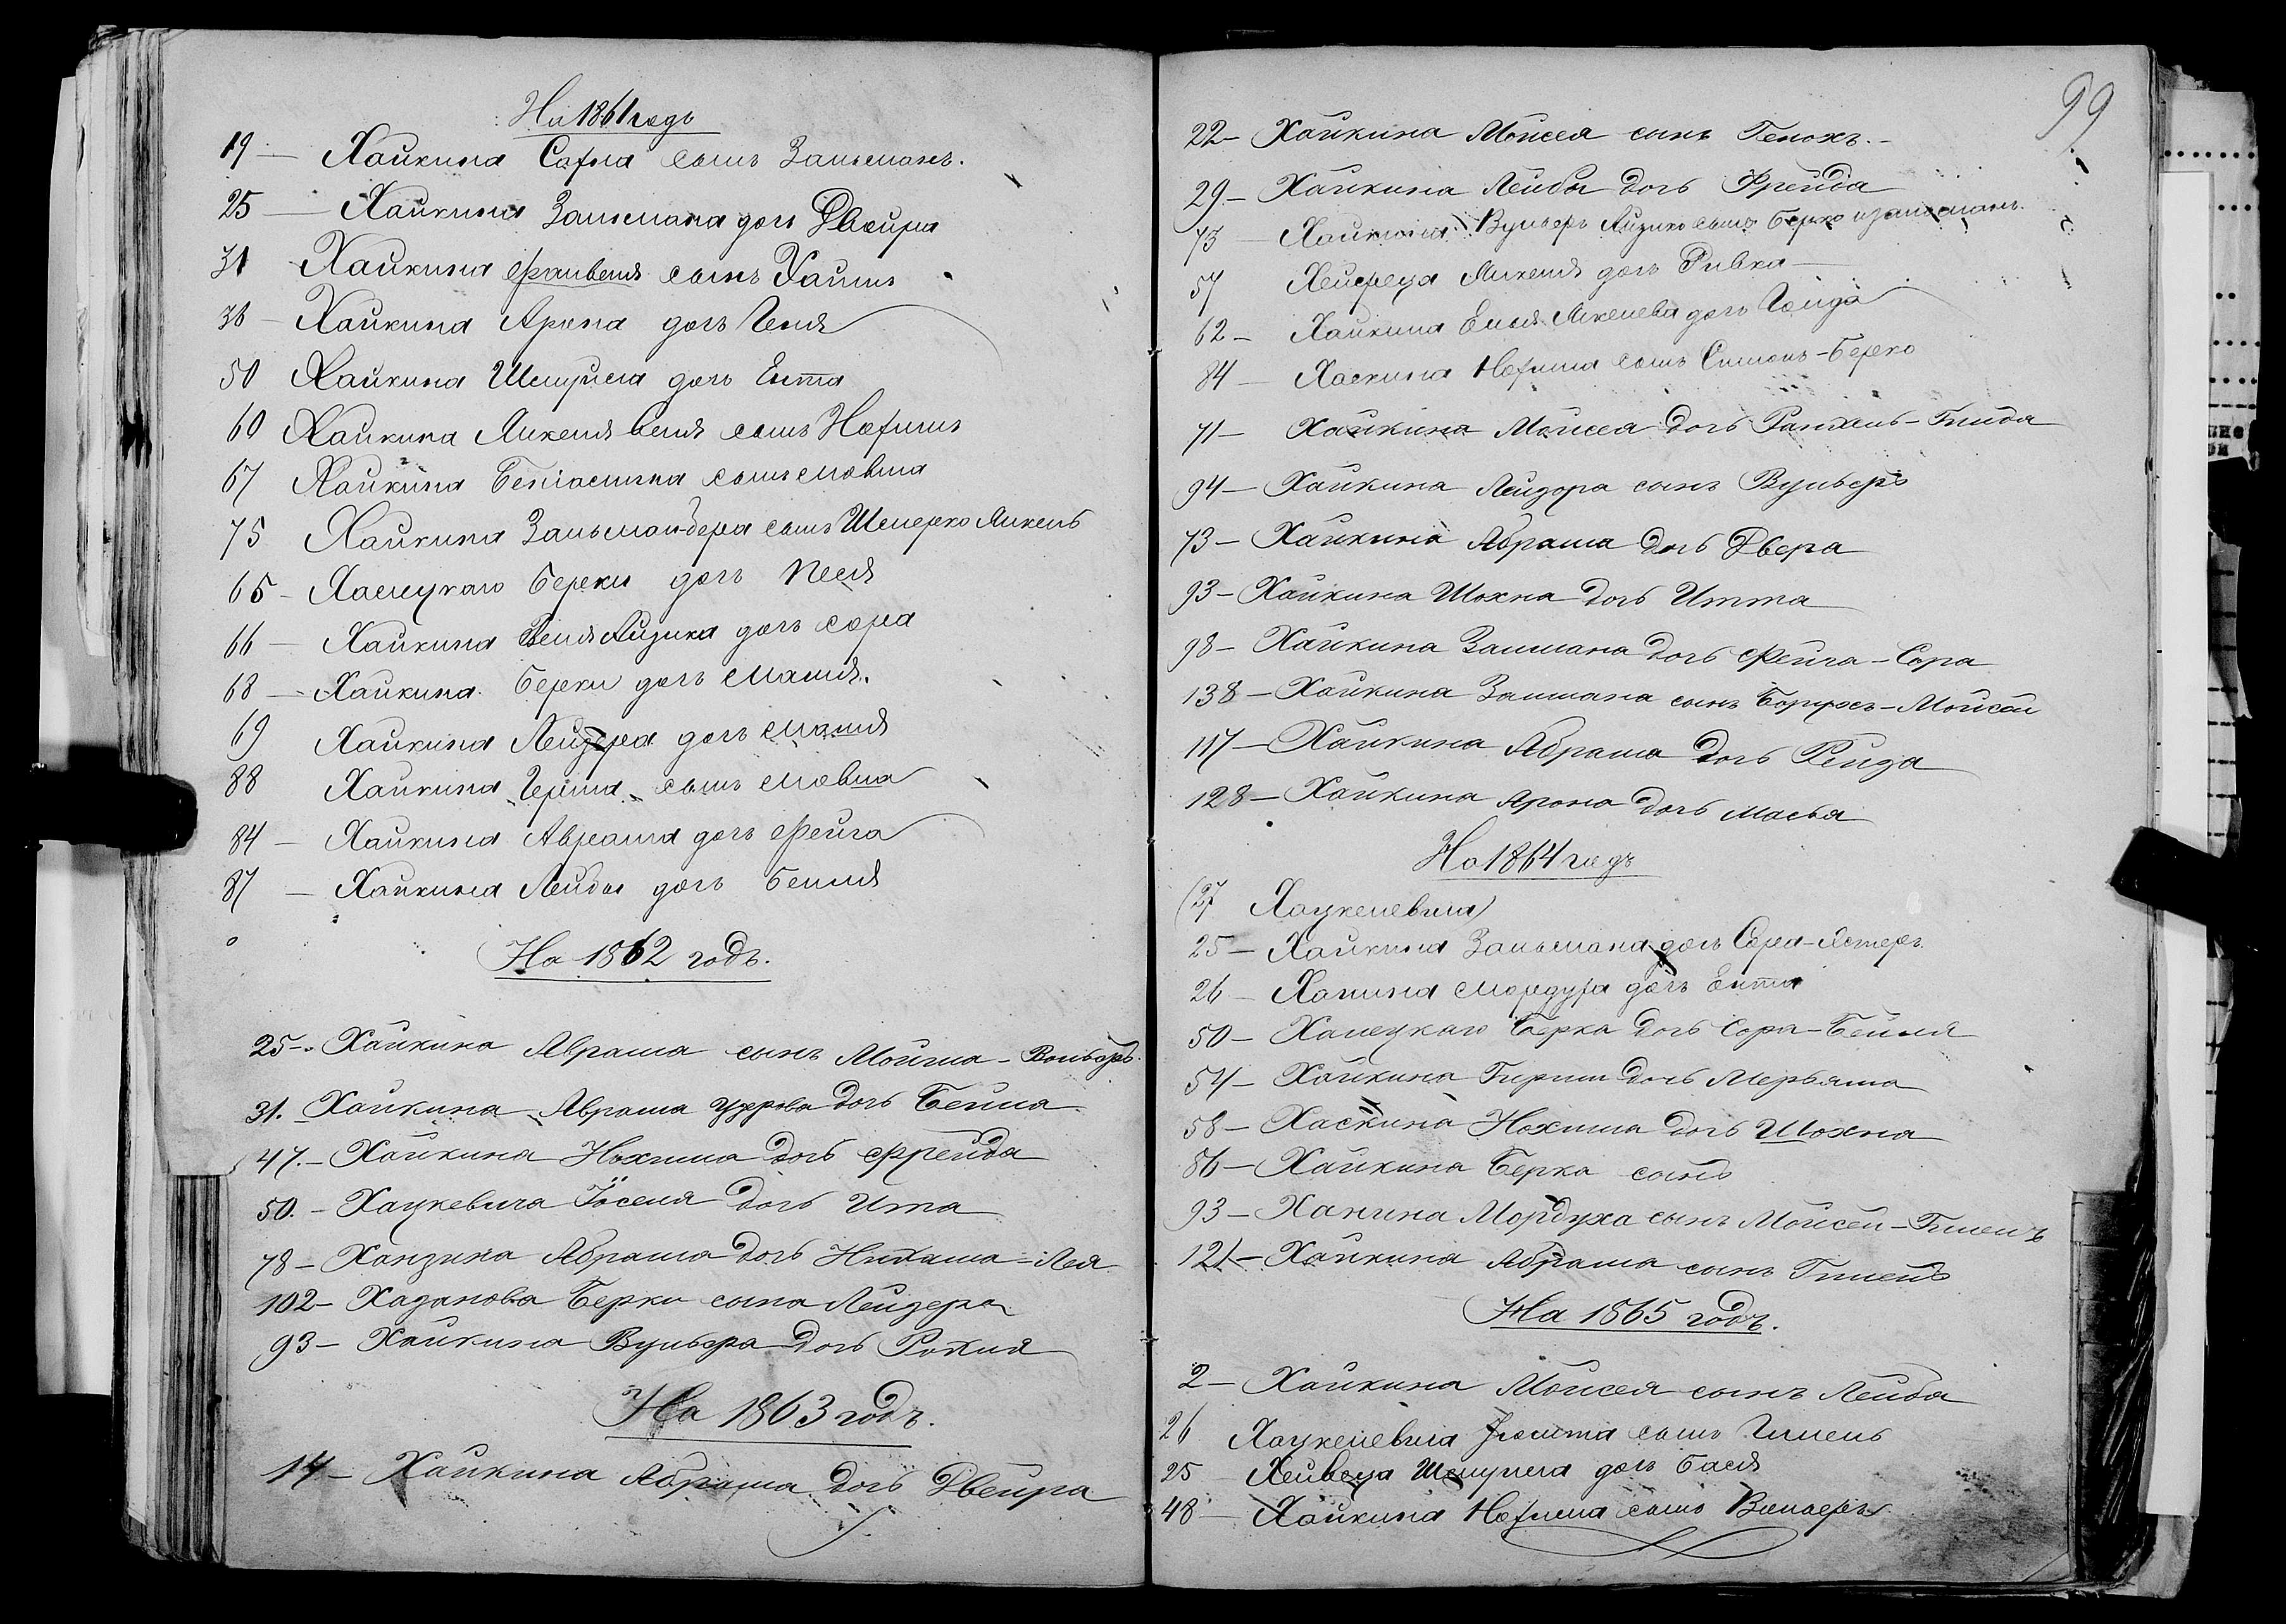 На 1861 годъ
19 — Хайкина Сахна сынъ Зальманъ.
25 — Хайкина Зальмана дочь Двейра
31 Хайкина Файвеля сынъ Хаимъ
36 — Хайкина Арона дочь Геня
50 Хайкина Шмуила дочь Ента
60 Хайкина Янкеля сынъ Нохимъ
67 Хайкина Беніамина сынъ Мовша
75 Хайкина Зальман-Бера сынъ Шмерко Янкель
65 — Берки дочь Песя
66 — Хайкина Айзика дочь Сора
68 — Хайкина Берки дочь Маша.
69 Хайкина Лейзера дочь
88 Хайкина Герша сынъ Мовша
84 — Хайкина Авраама дочь Фейга
87 — Хайкина Лейбы дочь Бейля
На 1862 годъ.
25 — Хайкина Абрама сынъ Мойша — Вольфъ.
31. Хайкина Абрама дочь Бейла
47. — Хайкина Нохима дочь Фрейда
50. — Хацкевича Іоселя дочь Ита
78 — Ханзина Абрама дочь Нихама — Лея
102 — Хазанова Берки сына Лейзера
93 — Хайкина Вульфа дочь Рохля
На 1863 годъ.
14 — Хайкина Абрама дочь Двейра
99
22 — Хайкина Моисея сынъ Генохъ. —
29. — Хайкина Лейбы дочь Фрейда
73 — Хайкина Вульфъ Айзика сынъ Берко и Зальманъ.
57 Хейфеца Янкеля дочь Ривка —
62 — Хайкина Янкелева дочь
84 — Хаскина Нохима сынъ Симонъ-Берко
71 — Хайкина Моисея дочь
94 — Хайкина Лейзера сынъ Вульфъ
73 — Хайкина Абрама дочь Двера
93 — Хайкина Шахна дочь Итта
98 — Хайкина Залмана дочь Фейга — Сора
138 — Хайкина Залмана сынъ Борухъ — Мойсей
117 — Хайкина Абрама дочь Рейза
128 — Хайкина Арона дочь Масья
На 1864 годъ
(27 Хацкелевича)
25 — Хайкина Зальмана дочь Сора-Эстеръ
26 — Ханина Мордуха дочь Ента
50 — Берка дочь Сора — Бейля
54 — Хайкина Гирши дочь Мерьяма
58 — Хаскина Нохима дочь Шохна
86 — Хайкина Берка сынъ
93 — Ханина Мордуха сынъ Моисей — Гилелъ
121 — Хайкина Абрама сынъ Гилель
На 1865 годъ.
2 — Хайкина Моисея сынъ Лейба
26 Хацкелевича сынъ Гилель
25 Хейфеца Шмуила дочь Бася
48 — Хайкина Нохима сынъ Вульфъ